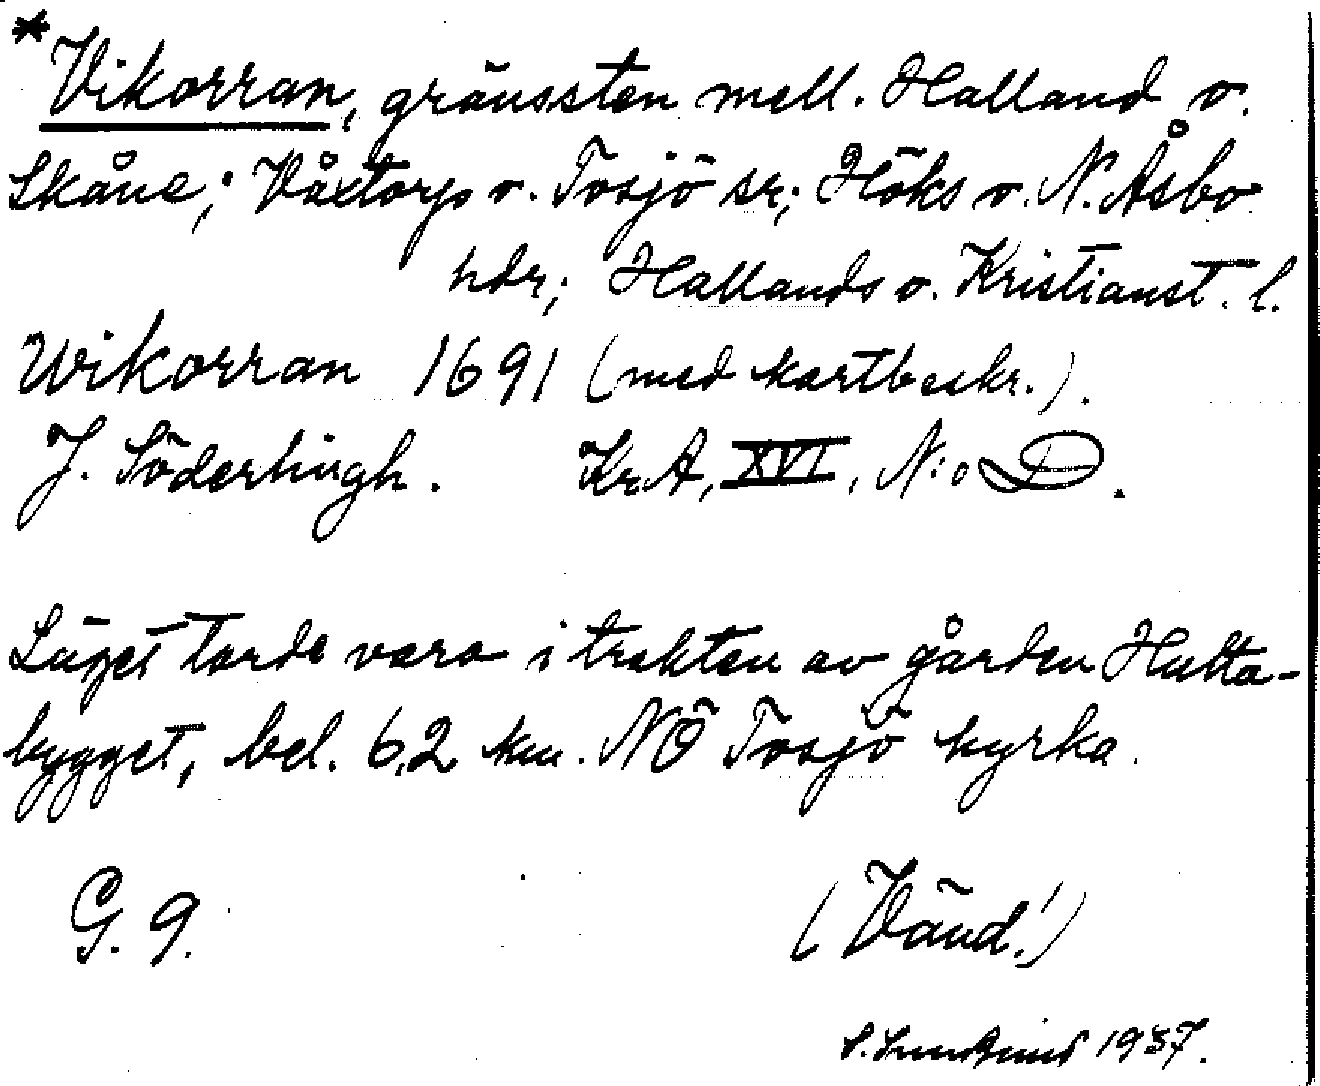 *Vikorran, gränssten mell. Halland o.
Skåne; Våxtorps o. Tosjö sr; Höks o. N. Åsbo
hdr; Hallands o. Kristianst. l.
Wikorran 1691 (med kartbeskr.).
J. Söderlingh. KrA, XVI, N:o D.
Läget torde vara i trakten av gården Hulta-
bygget, bel. 6,2 km. NÖ Tosjö kyrka.
G. 9. (Vänd!)
1937.